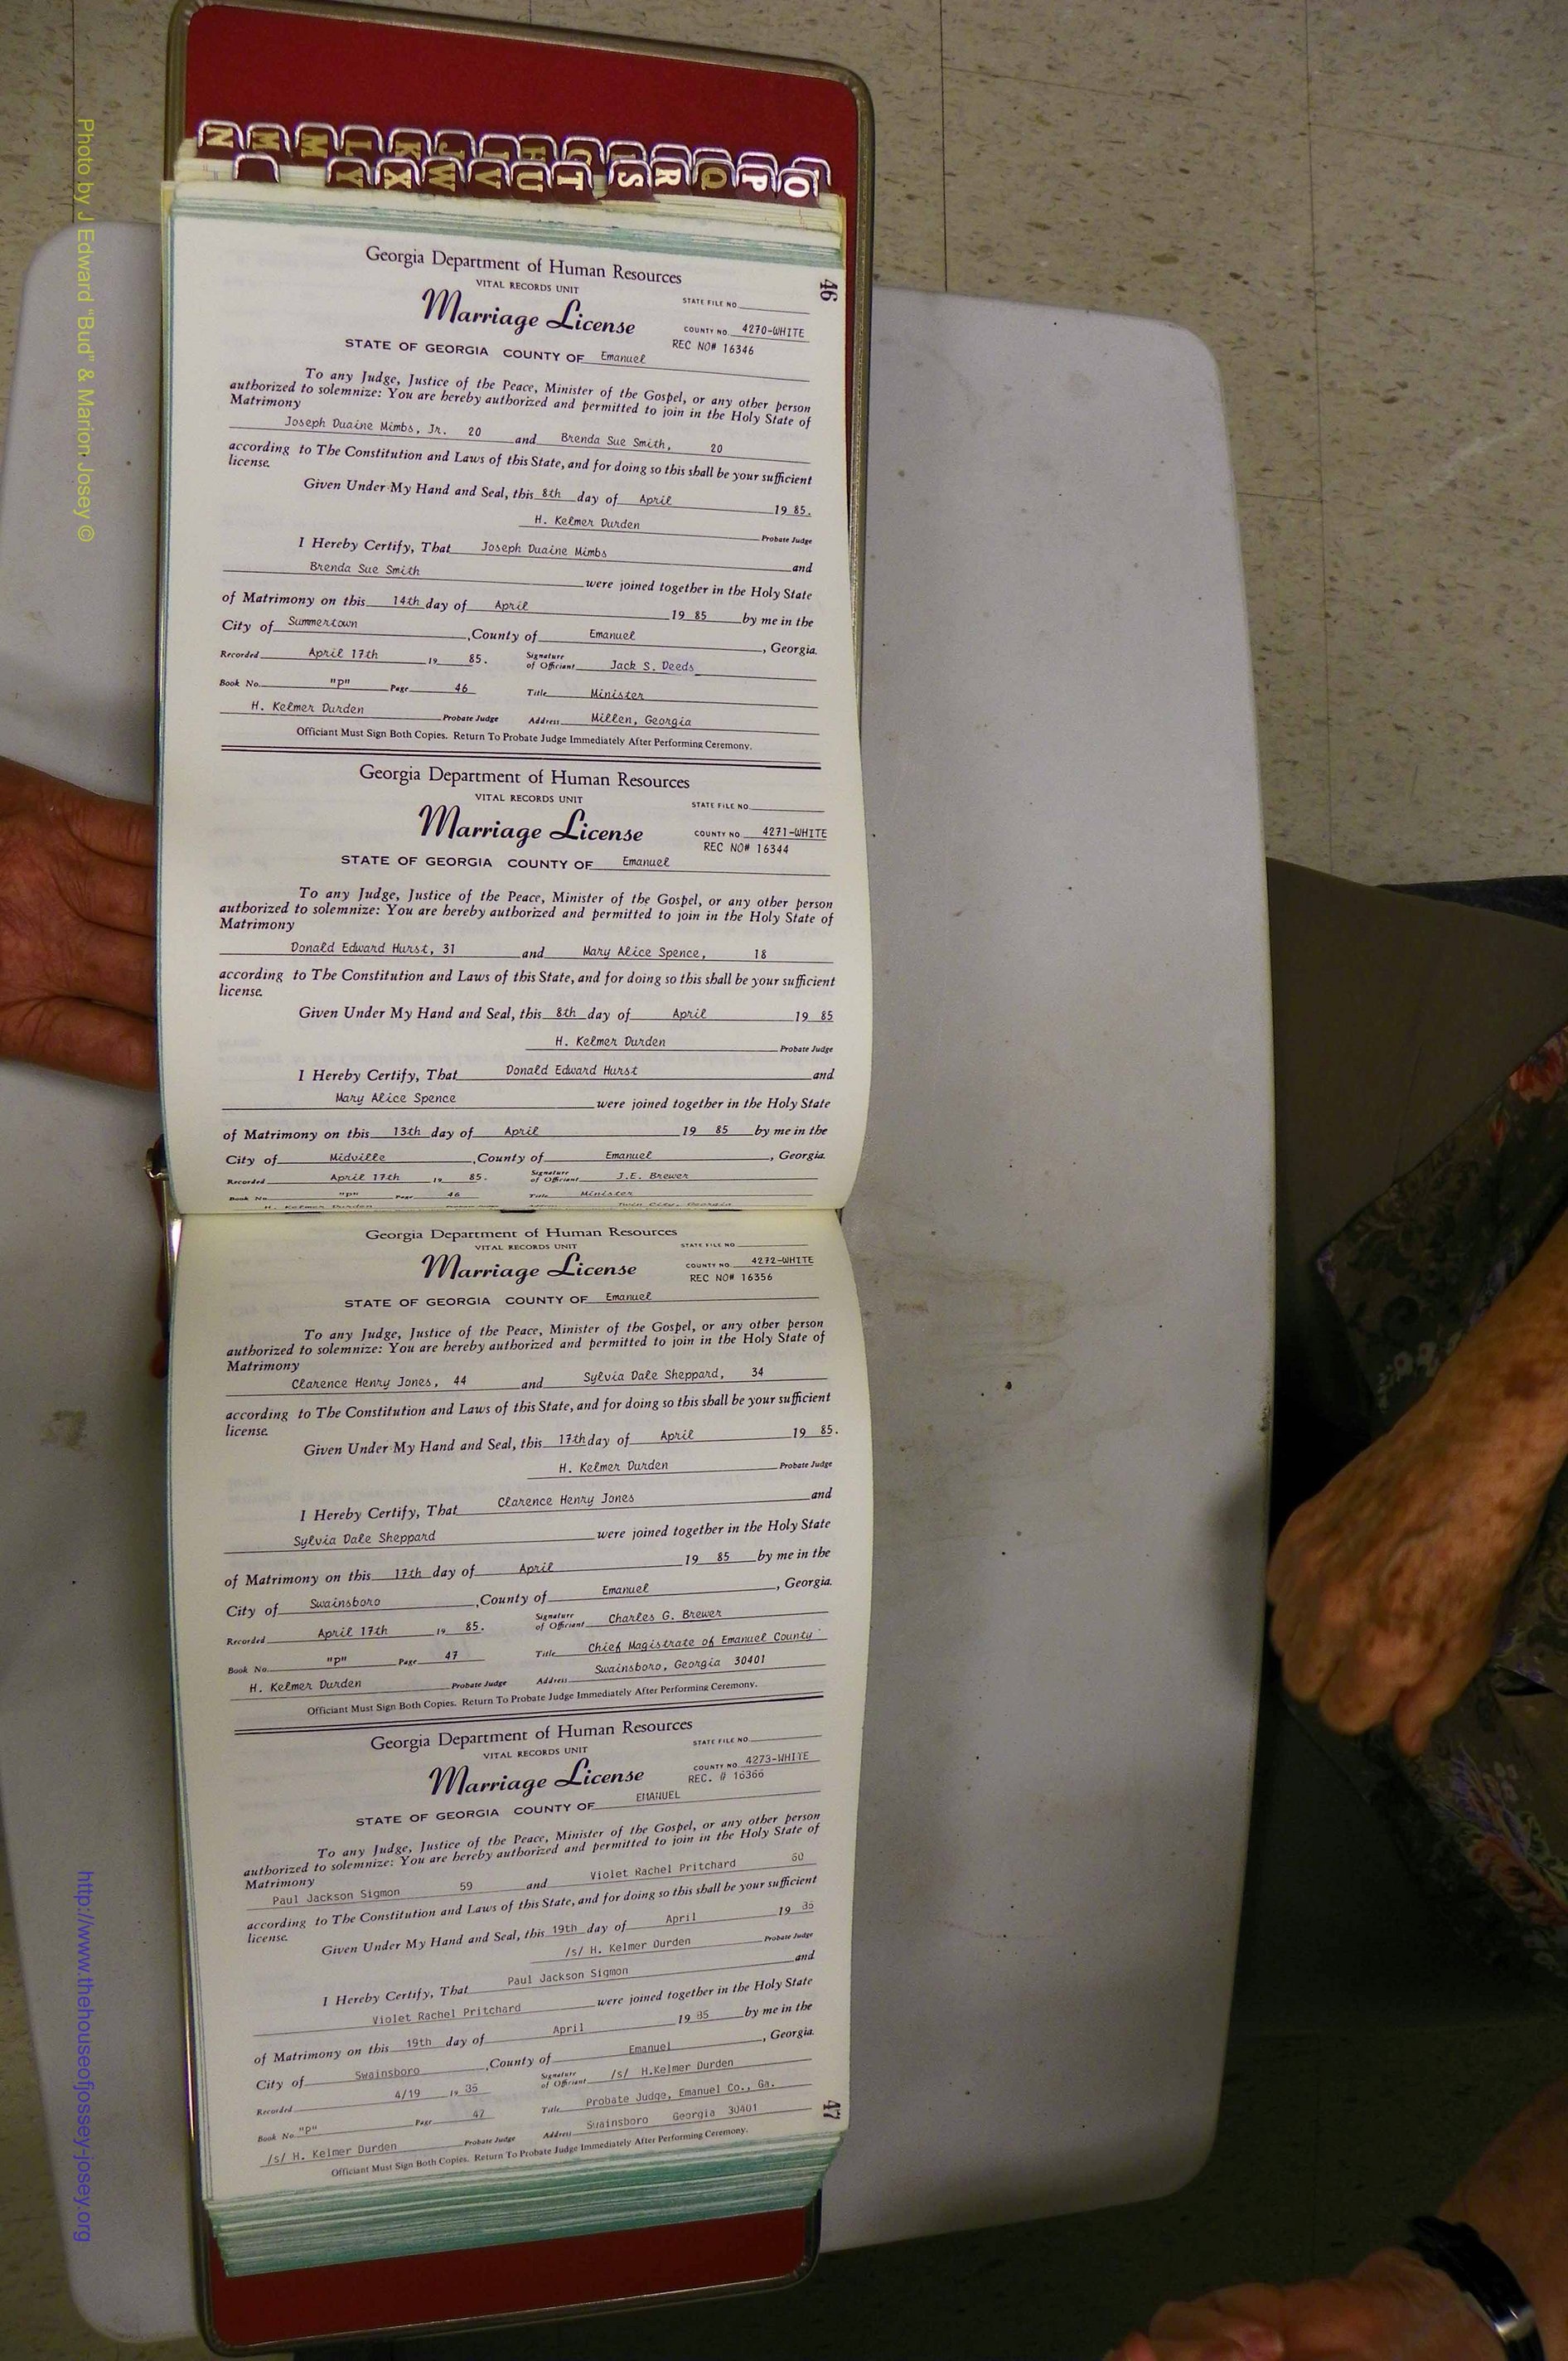 N M M L K J I H G R Q P O
Y X W V U T S
46
Georgia Department of Human Resources
VITAL RECORDS UNIT
STATE FILE NO.
Marriage License
COUNTY NO. 4270-WHITE
REC NO# 16346
STATE OF GEORGIA COUNTY OF Emanuel
To any Judge, Justice of the Peace, Minister of the Gospel, or any other person
authorized to solemnize: You are hereby authorized and permitted to join in the Holy State of
Matrimony
Joseph Duaine Mimbs, Jr. 20 and Brenda Sue Smith, 20
according to The Constitution and Laws of this State, and for doing so this shall be your sufficient
license.
Given Under My Hand and Seal, this 8th day of April 19 85.
H. Kelmer Durden Probate Judge
I Hereby Certify, That Joseph Duaine Mimbs and
Brenda Sue Smith were joined together in the Holy State
of Matrimony on this 14th day of April 19 85 by me in the
City of Summertown, County of Emanuel, Georgia.
Recorded April 17th 19 85. Signature of Officiant Jack S. Deeds
Book No. "P" Page 46 Title Minister
H. Kelmer Durden Probate Judge Address Millen, Georgia
Officiant Must Sign Both Copies. Return To Probate Judge Immediately After Performing Ceremony.
Georgia Department of Human Resources
VITAL RECORDS UNIT
STATE FILE NO.
Marriage License
COUNTY NO. 4271-WHITE
REC NO# 16344
STATE OF GEORGIA COUNTY OF Emanuel
To any Judge, Justice of the Peace, Minister of the Gospel, or any other person
authorized to solemnize: You are hereby authorized and permitted to join in the Holy State of
Matrimony
Donald Edward Hurst, 31 and Mary Alice Spence, 18
according to The Constitution and Laws of this State, and for doing so this shall be your sufficient
license.
Given Under My Hand and Seal, this 8th day of April 19 85
H. Kelmer Durden Probate Judge
I Hereby Certify, That Donald Edward Hurst and
Mary Alice Spence were joined together in the Holy State
of Matrimony on this 13th day of April 19 85 by me in the
City of Midville, County of Emanuel, Georgia.
Recorded April 17th 19 85. Signature of Officiant J.E. Brewer
Book No. "P" Page 46 Title Minister
H. Kelmer Durden Twin City, Georgia
Georgia Department of Human Resources
VITAL RECORDS UNIT
STATE FILE NO.
Marriage License
COUNTY NO. 4272-WHITE
REC NO# 16356
STATE OF GEORGIA COUNTY OF Emanuel
To any Judge, Justice of the Peace, Minister of the Gospel, or any other person
authorized to solemnize: You are hereby authorized and permitted to join in the Holy State of
Matrimony
Clarence Henry Jones, 44 and Sylvia Dale Sheppard, 34
according to The Constitution and Laws of this State, and for doing so this shall be your sufficient
license.
Given Under My Hand and Seal, this 17th day of April 19 85.
H. Kelmer Durden Probate Judge
I Hereby Certify, That Clarence Henry Jones and
Sylvia Dale Sheppard were joined together in the Holy State
of Matrimony on this 17th day of April 19 85 by me in the
City of Swainsboro, County of Emanuel, Georgia.
Recorded April 17th 19 85. Signature of Officiant Charles G. Brewer
Book No. "P" Page 47 Title Chief Magistrate of Emanuel County
H. Kelmer Durden Probate Judge Address Swainsboro, Georgia 30401
Officiant Must Sign Both Copies. Return To Probate Judge Immediately After Performing Ceremony.
Georgia Department of Human Resources
VITAL RECORDS UNIT
STATE FILE NO.
Marriage License
COUNTY NO. 4273-WHITE
REC. # 16366
STATE OF GEORGIA COUNTY OF EMANUEL
To any Judge, Justice of the Peace, Minister of the Gospel, or any other person
authorized to solemnize: You are hereby authorized and permitted to join in the Holy State of
Matrimony
Paul Jackson Sigmon 59 and Violet Rachel Pritchard 60
according to The Constitution and Laws of this State, and for doing so this shall be your sufficient
license.
Given Under My Hand and Seal, this 19th day of April 19 85
/s/ H. Kelmer Durden Probate Judge
I Hereby Certify, That Paul Jackson Sigmon and
Violet Rachel Pritchard were joined together in the Holy State
of Matrimony on this 19th day of April 19 85 by me in the
City of Swainsboro, County of Emanuel, Georgia.
Recorded 4/19 19 85 Signature of Officiant /s/ H.Kelmer Durden
Book No. "P" Page 47 Title Probate Judge, Emanuel Co., Ga.
/s/ H. Kelmer Durden Probate Judge Address Swainsboro Georgia 30401
Officiant Must Sign Both Copies. Return To Probate Judge Immediately After Performing Ceremony.
47
Photo by J Edward "Bud" & Marion Josey ©
http://www.thehouseofjossey-josey.org